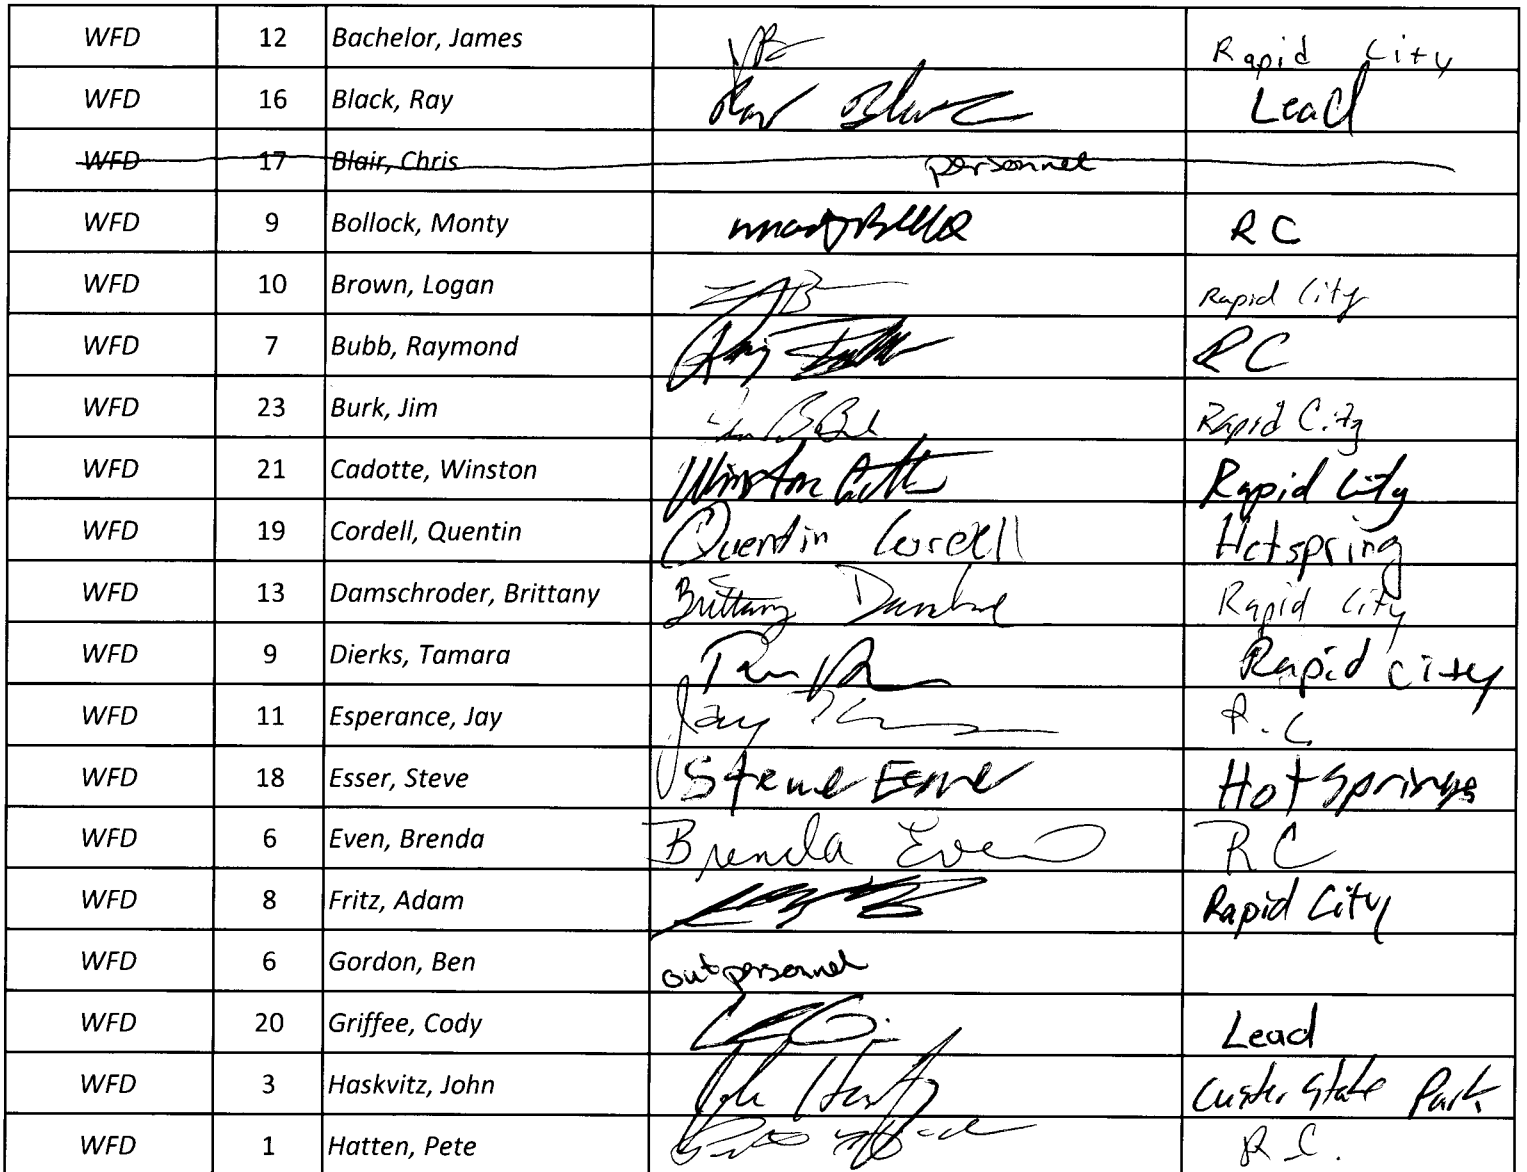 WFD 12 Bachelor, James JB Rapid City
WFD 16 Black, Ray Ray Black Lead
WFD 17 Blair, Chris personnel
WFD 9 Bollock, Monty RC
WFD 10 Brown, Logan Rapid City
WFD 7 Bubb, Raymond Ray RC
WFD 23 Burk, Jim Rapid City
WFD 21 Cadotte, Winston Winston Rapid City
WFD 19 Cordell, Quentin Quentin Cordell Hotspring
WFD 13 Damschroder, Brittany Brittany Rapid City
WFD 9 Dierks, Tamara Rapid City
WFD 11 Esperance, Jay Jay R.C
WFD 18 Esser, Steve Steve Esser Hot Springs
WFD 6 Even, Brenda Brenda Even RC
WFD 8 Fritz, Adam Rapid City
WFD 6 Gordon, Ben out personnel
WFD 20 Griffee, Cody Lead
WFD 3 Haskvitz, John John Custer State Park
WFD 1 Hatten, Pete R.C.